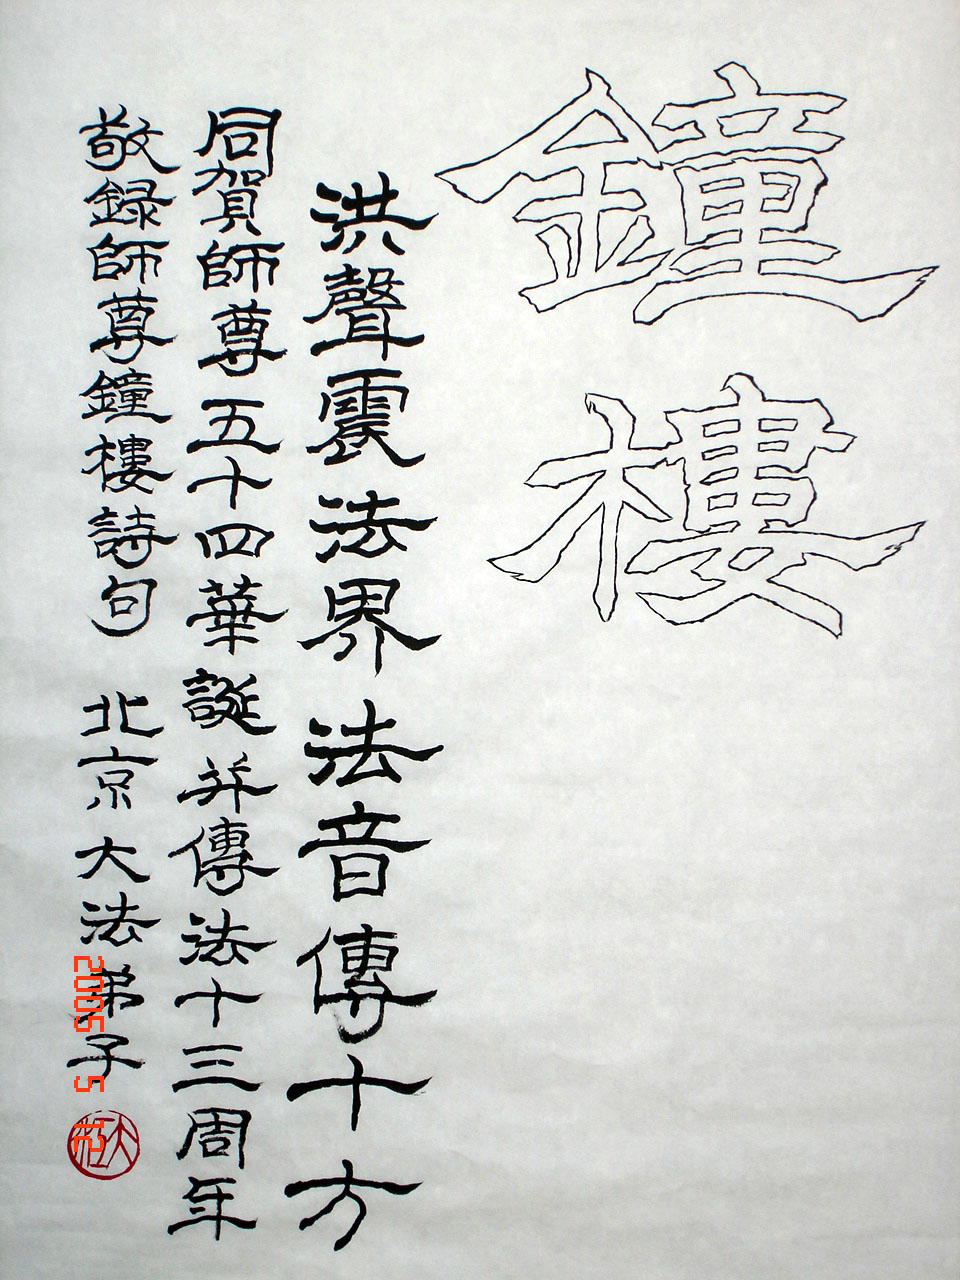 鐘樓
洪聲震法界法音傳十方
同賀師尊五十四華誕并傳法十三周年
敬録師尊鐘樓詩句 北京大法弟子
2005 5 12